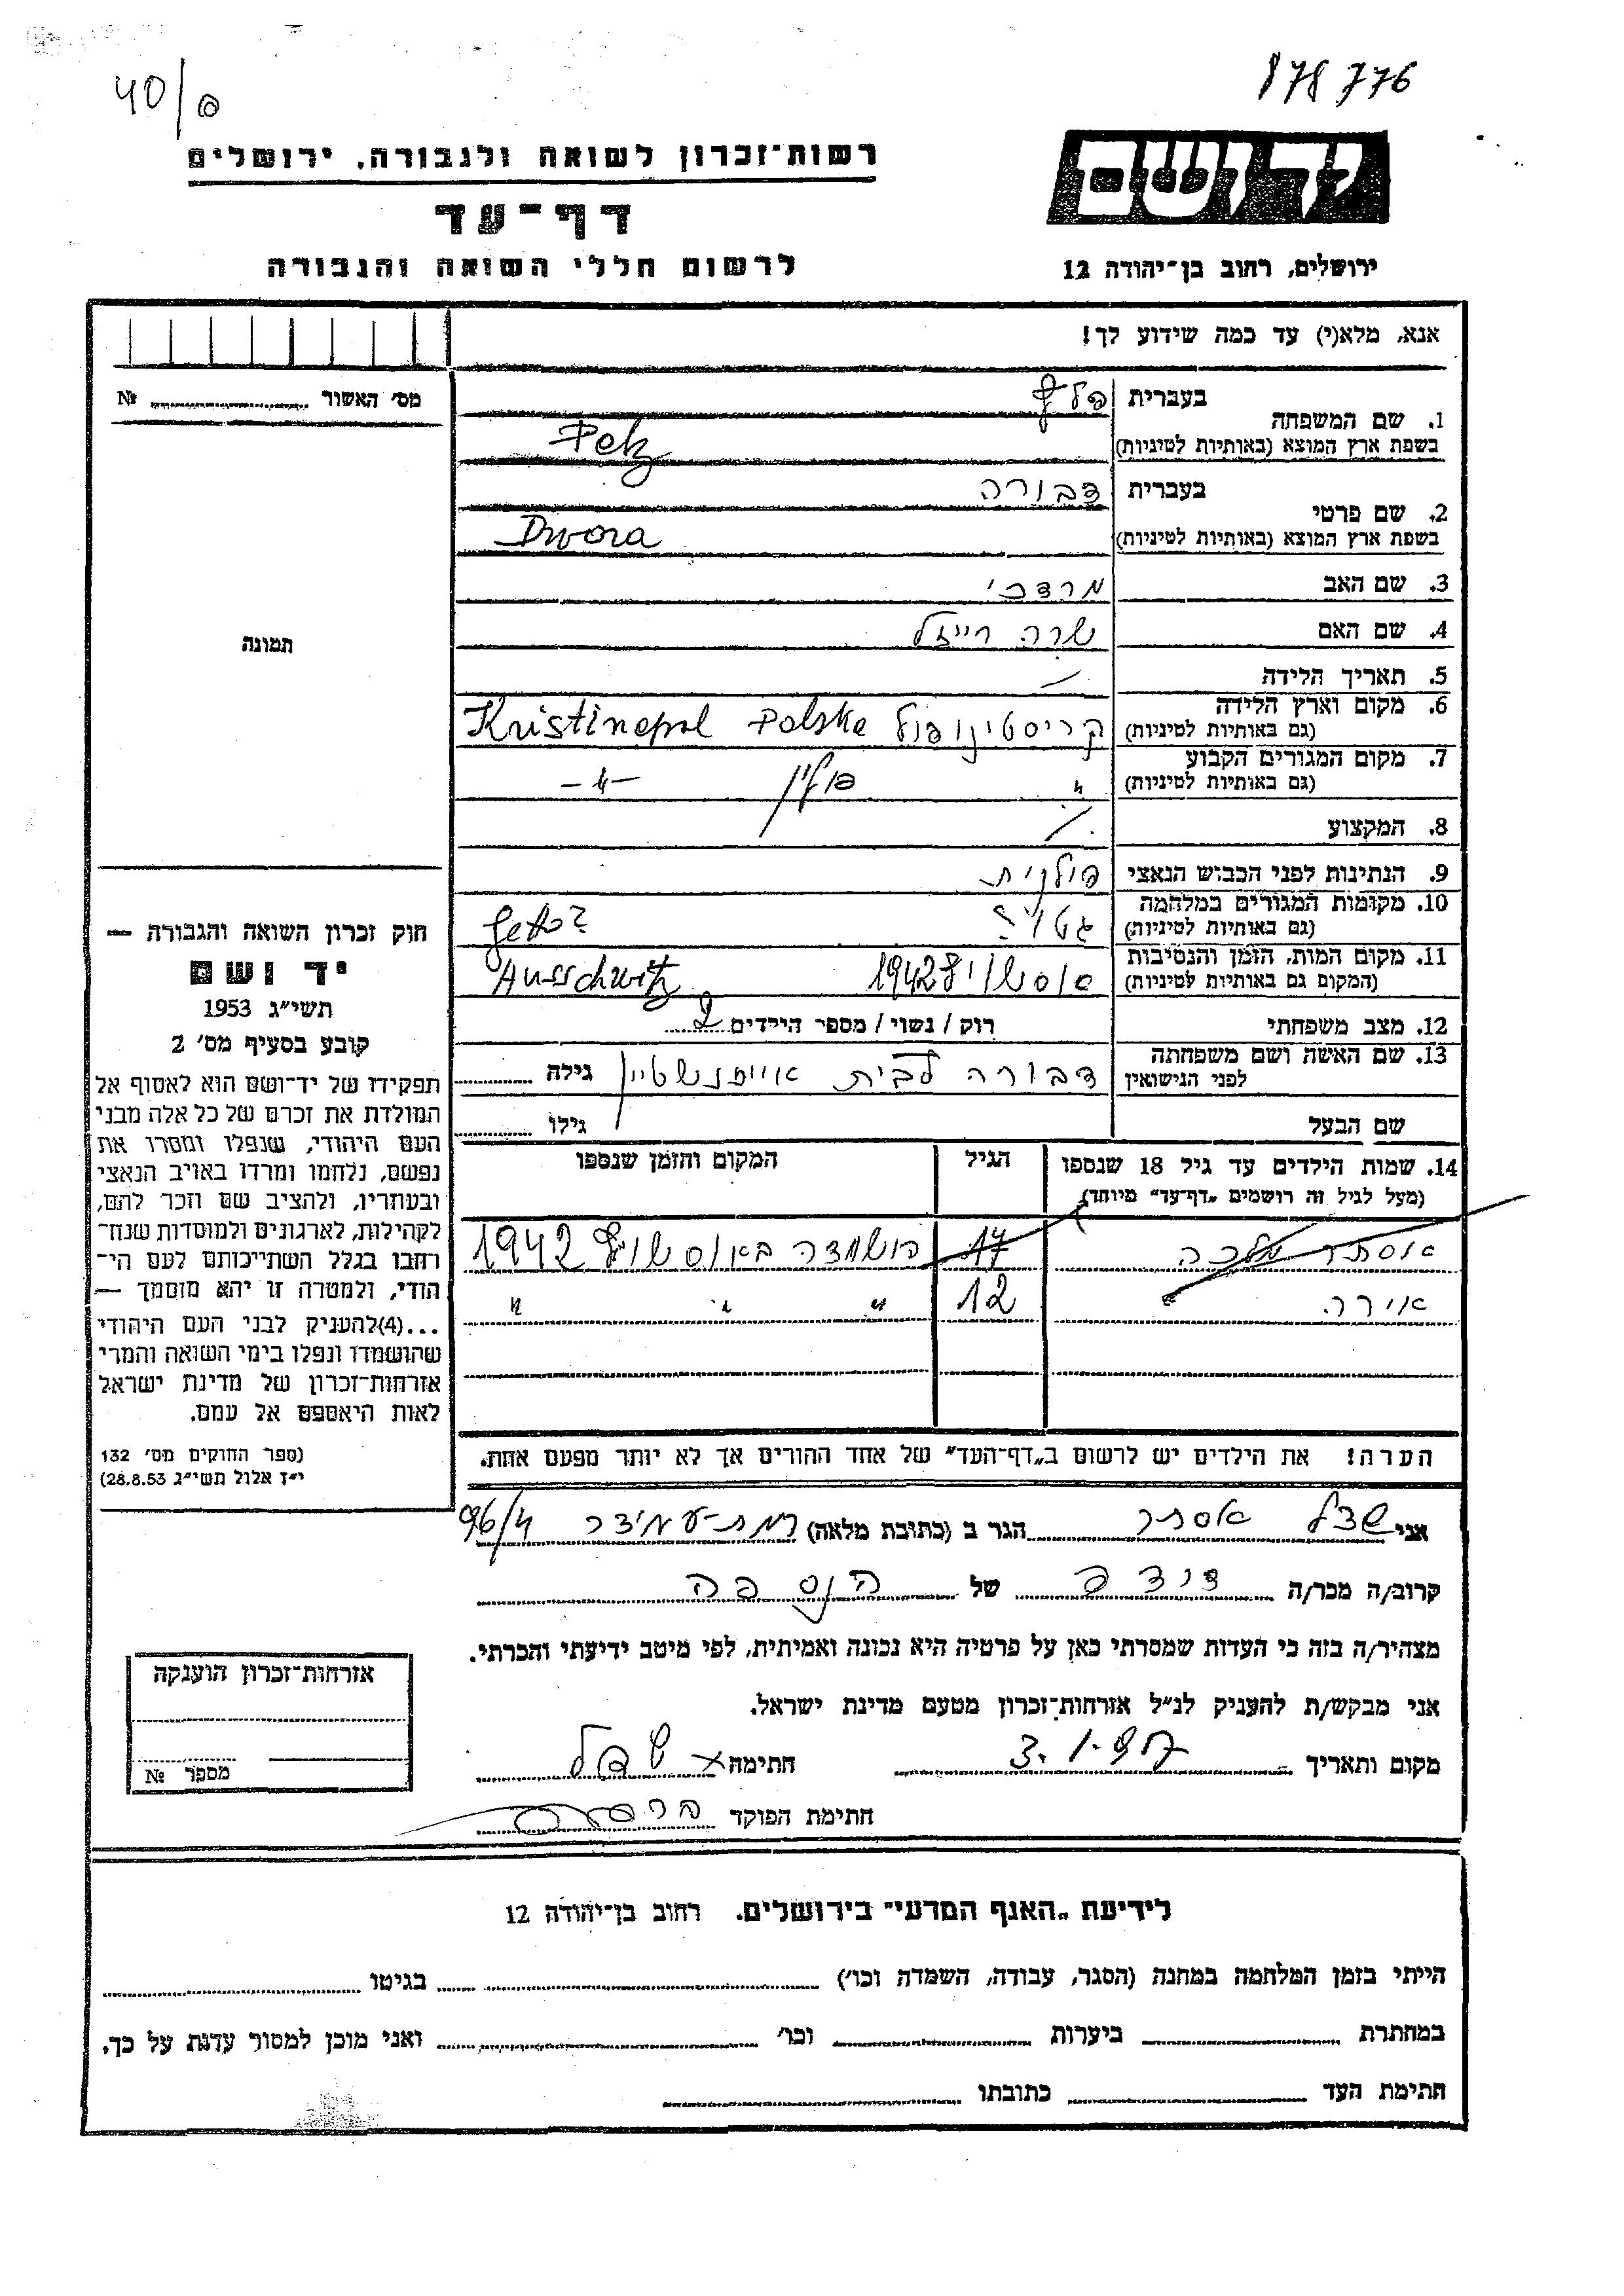 40/0
878776
רשות־זכרון לשואה ולגבורה, ירושלים
דף־עד
לרשום חללי השואה והגבורה
יד ושם
ירושלים, רחוב בן־יהודה 12
אנא, מלא(י) עד כמה שידוע לך!
מס' האשור № 
1. שם המשפחה
בעברית פלץ
בשפת ארץ המוצא (באותיות לטיניות) Pelz
2. שם פרטי
בעברית דבורה
בשפת ארץ המוצא (באותיות לטיניות) Dwora
3. שם האב מרדכי
4. שם האם שרה רייזל
5. תאריך הלידה /
6. מקום וארץ הלידה
(גם באותיות לטיניות) קריסטינופול Kristinopol Polska
7. מקום המגורים הקבוע
(גם באותיות לטיניות) " פולין -"-
8. המקצוע /
9. הנתינות לפני הכבוש הנאצי פולנית
10. מקומות המגורים במלחמה
(גם באותיות לטיניות) גטו ? Getto ?
11. מקום המות, הזמן והנסיבות
(המקום גם באותיות לטיניות) אוסשויץ 1942 Ausschwitz
12. מצב משפחתי רוק / נשוי / מספר הילדים 2
13. שם האשה ושם משפחתה
לפני הנישואין דבורה לבית אייזנשטיין גילה
שם הבעל גילו
14. שמות הילדים עד גיל 18 שנספו הגיל המקום והזמן שנספו
(מעל לגיל זה רושמים „דף־עד” מיוחד)
אסתר מלכה 17 הושמדה באוסשויץ 1942
אירה 12 " " " "
הערה! את הילדים יש לרשום ב„דף־העד” של אחד ההורים אך לא יותר מפעם אחת.
תמונה
חוק זכרון השואה והגבורה —
יד ושם
תשי״ג 1953
קובע בסעיף מס' 2
תפקידו של יד־ושם הוא לאסוף אל
המולדת את זכרם של כל אלה מבני
העם היהודי, שנפלו ומסרו את
נפשם, נלחמו ומרדו באויב הנאצי
ובעוזריו, ולהציב שם וזכר להם,
לקהילות, לארגונים ולמוסדות שנח־
רחבו בגלל השתייכותם לעם הי־
הודי, ולמטרה זו יהא מוסמך —
...(4)להעניק לבני העם היהודי
שהושמדו ונפלו בימי השואה והמרי
אזרחות־זכרון של מדינת ישראל
לאות היאספם אל עמם.
(ספר החוקים מס' 132
י״ז אלול תשי״ג 28.8.53)
אני אסתר הגר ב (כתובת מלאה) רמת־עמידר 96/4
קרוב/ה מכר/ה של הנספה
מצהיר/ה בזה כי העדות שמסרתי כאן על פרטיה היא נכונה ואמיתית, לפי מיטב ידיעתי והכרתי.
אני מבקש/ת להעניק לנ״ל אזרחות־זכרון מטעם מדינת ישראל.
מקום ותאריך חתימה
חתימת הפוקד
אזרחות־זכרון הוענקה
מספר №
לידיעת „האגף המדעי” בירושלים. רחוב בן־יהודה 12
הייתי בזמן המלחמה במחנה (הסגר, עבודה, השמדה וכו') בגיטו
במחתרת ביערות וכו' ואני מוכן למסור עדות על כך.
חתימת העד כתובתו